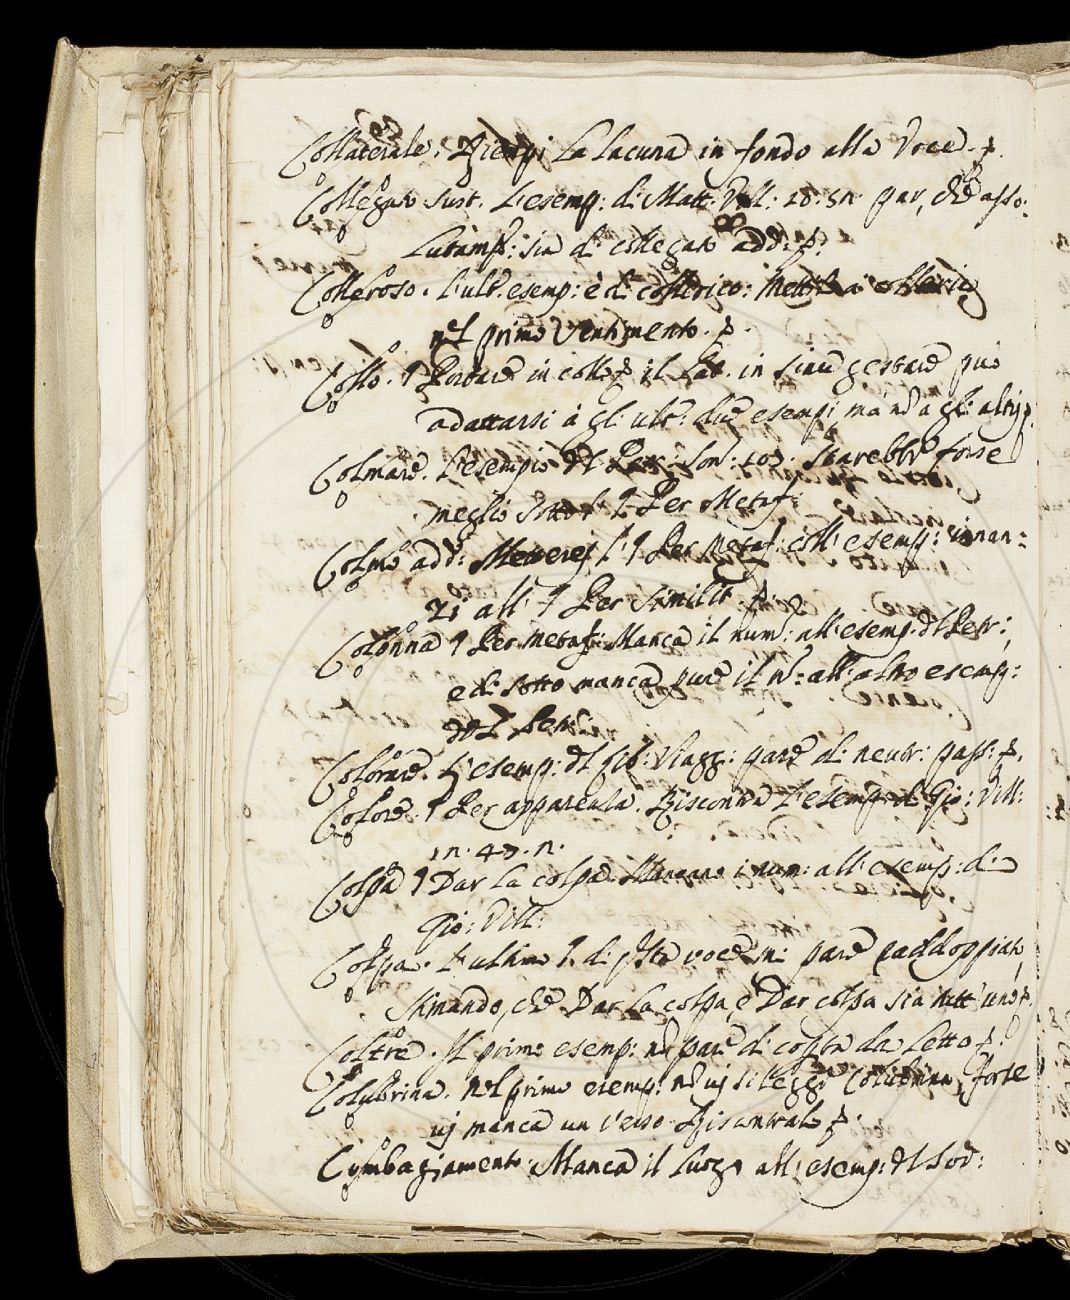 Collaterale. Riempi la lacuna in fondo alla Voce.
Collegato sust. L'esemp: di Matt. Vill: 10: 50. par, che asso-
lutamte: sia di collegato add:
Colleroso. L'ult. esemp: è di collerico:
nel primo Ventimento.
Collo. ¶ Portare in collo il Lat. in sinu gestare può
adattarsi a gl'ult: due esempi ma nō a gl'altri.
Colmare. L'esempio del Petr: Son: 103. Starebbe forse
meglio sotto 'l ¶ Per Metaf:
Colmo add: Metterei l'¶ Per Metaf: coll'esemp: innan-
zi all'¶ Per Similit
Colonna ¶ Per metaf: Manca il num: all'esemp: del Petr:,
e di sotto manca pure il n°: all'altro esemp:
del Petr:
Colorare. L'esemp: del lib: Viagg: pare di neutr: pass:
Colore. ¶ Per apparenza. Riscontra l'esemp di Gio: Vill:
11. 43. n.
Colpa ¶ Dar la colpa. Mancano i num: all'esemp: di
Gio: Vill:
Colpa. L'ultimo ¶. di qsta voce mi pare raddoppiato,
stimando, che Dar la colpa, e Dar colpa sia tutt'uno.
Coltre. Il primo esemp: nō pare di coltre da letto.
Colubrina. Nel primo esemp: nō vi si legge Colubrina, forse
vi manca un verso. Riscontralo.
Combagiamento. Manca il luogo all'esemp: del Sod: